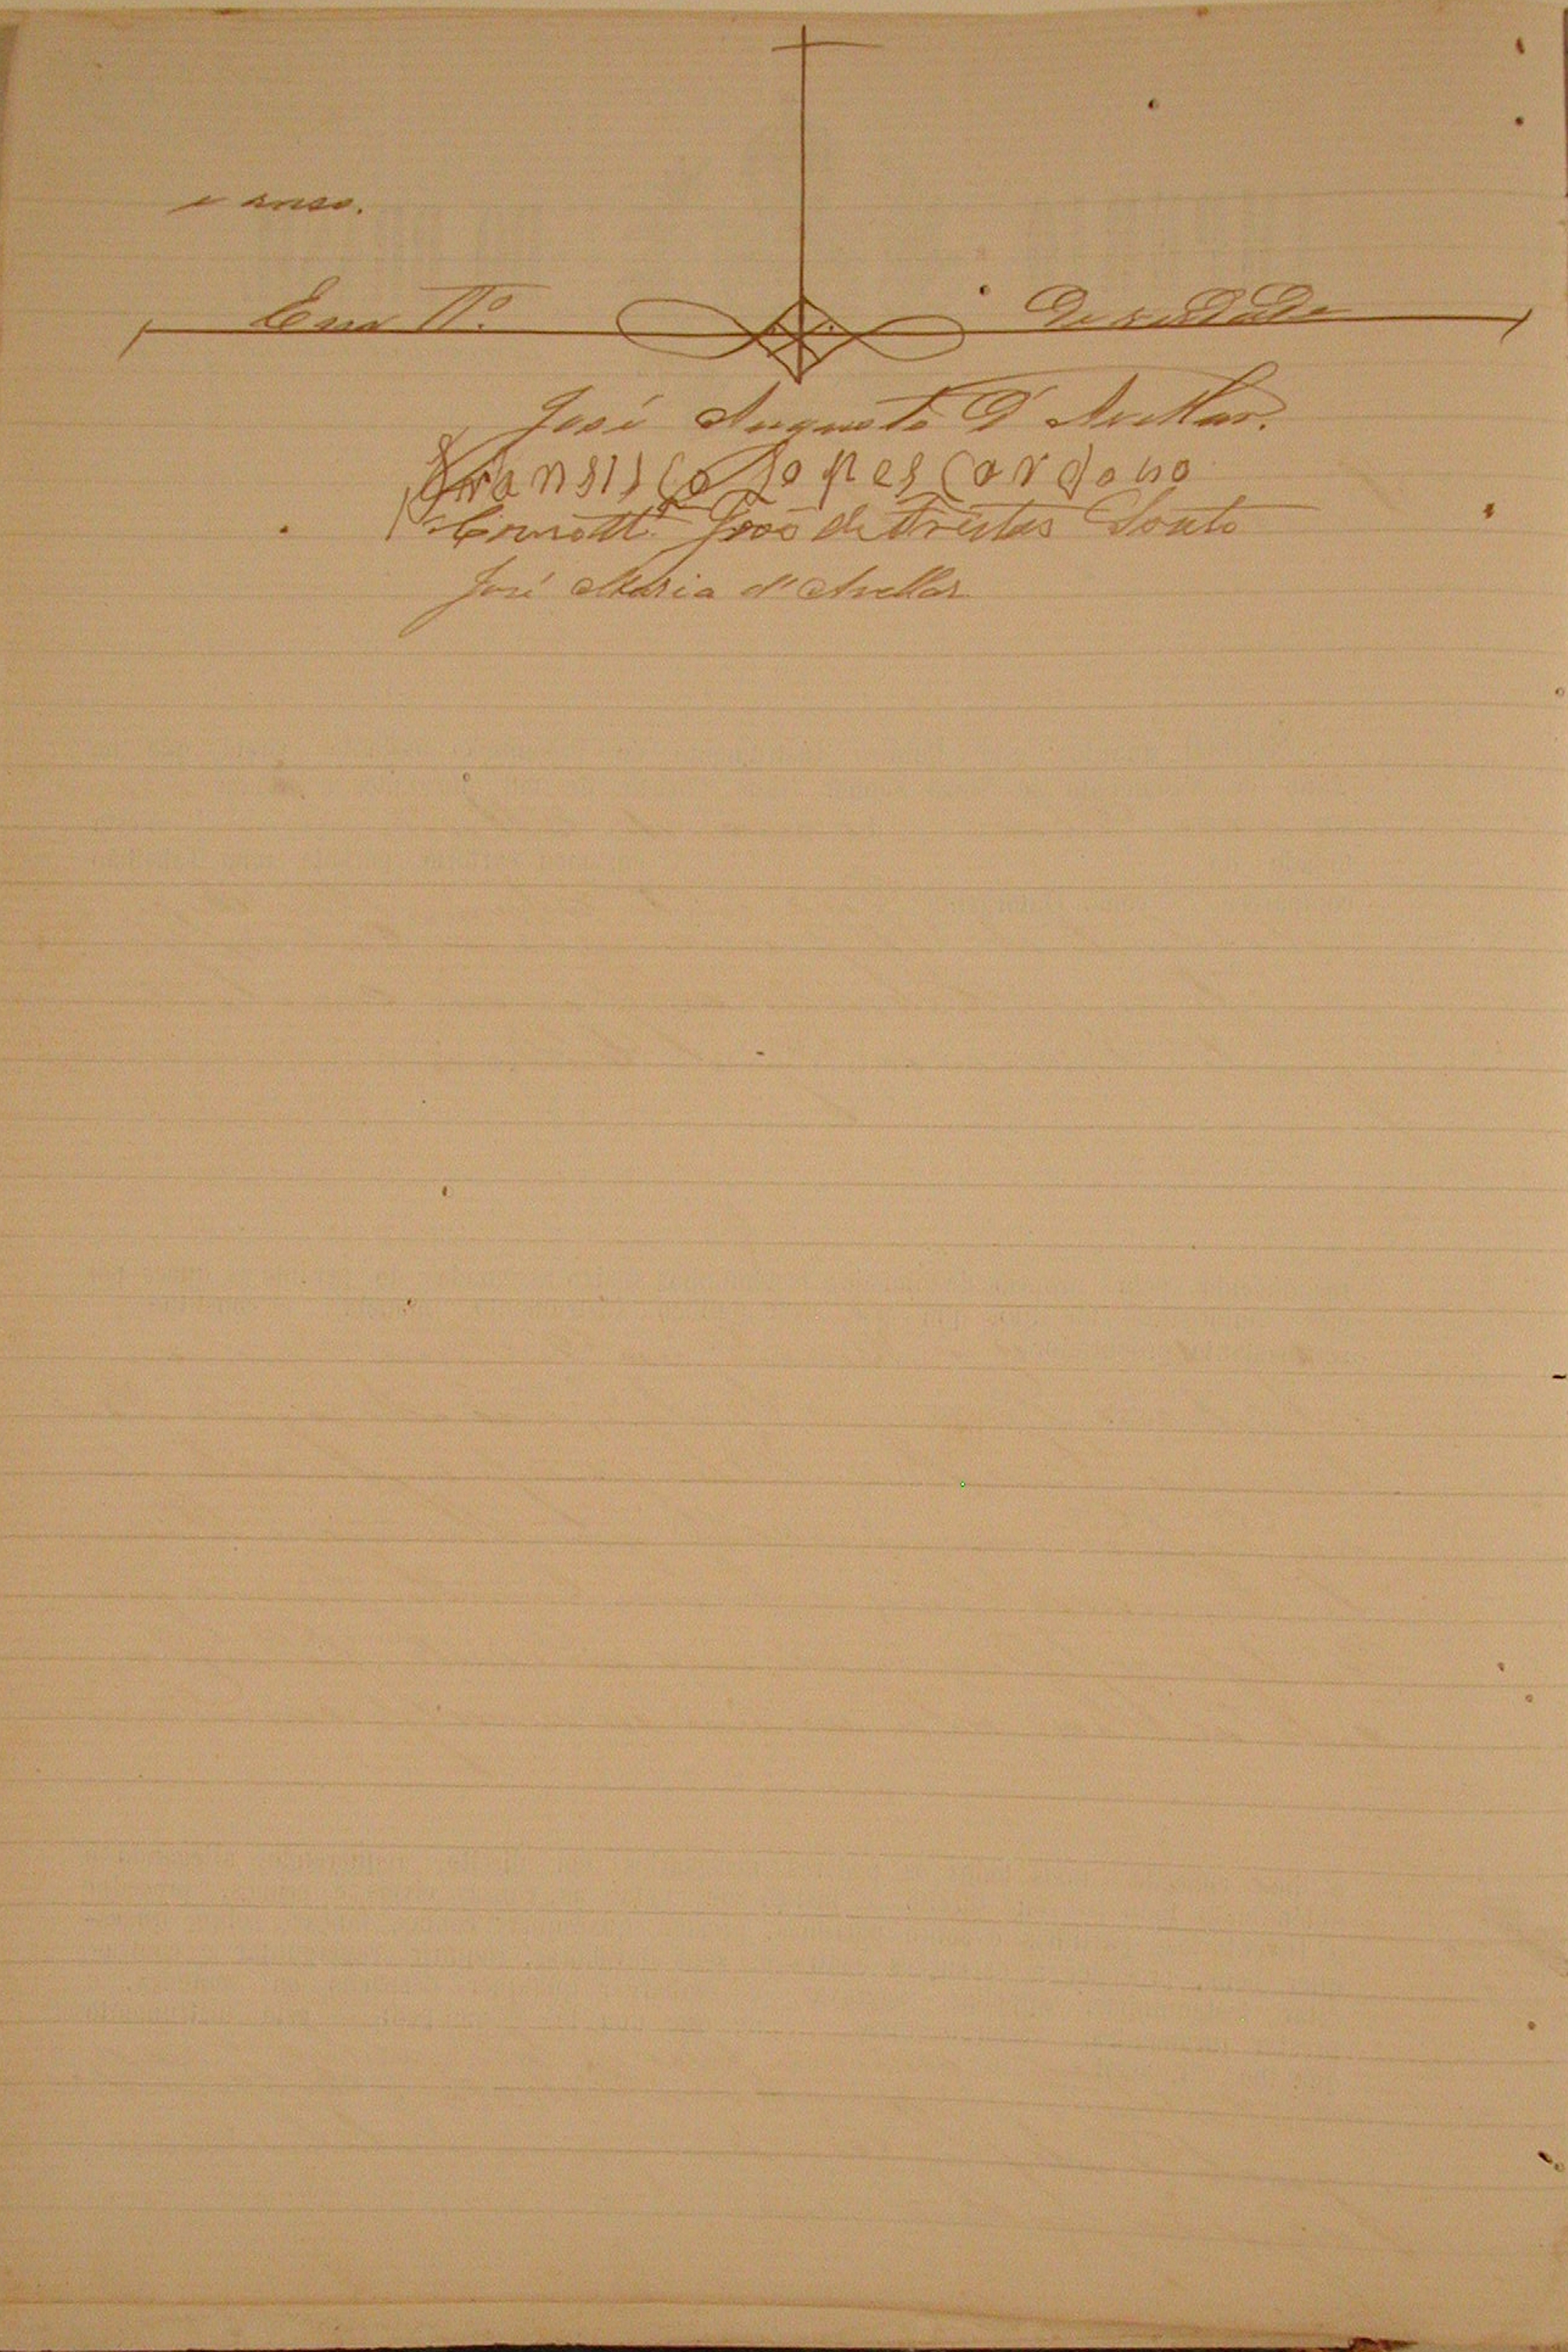 e anno.
Em Tº. De verdade
José Augusto d'Avellar.
Fransisco Lopes Cardono
João de Freitas Souto
José Maria d'Avellar